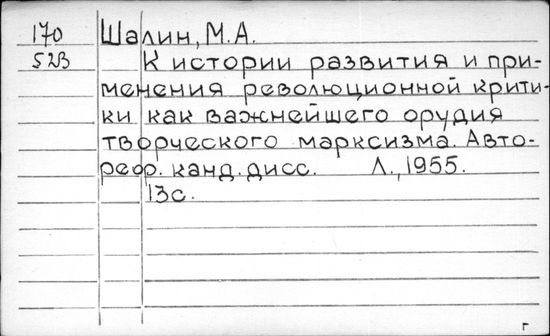 170 Шалин, М.А.
52В К истории развития и при-
менения революционной крити-
ки как важнейшего орудия
творческого марксизма. Авто-
реф. канд. дисс. Л., 1955.
13с.
г